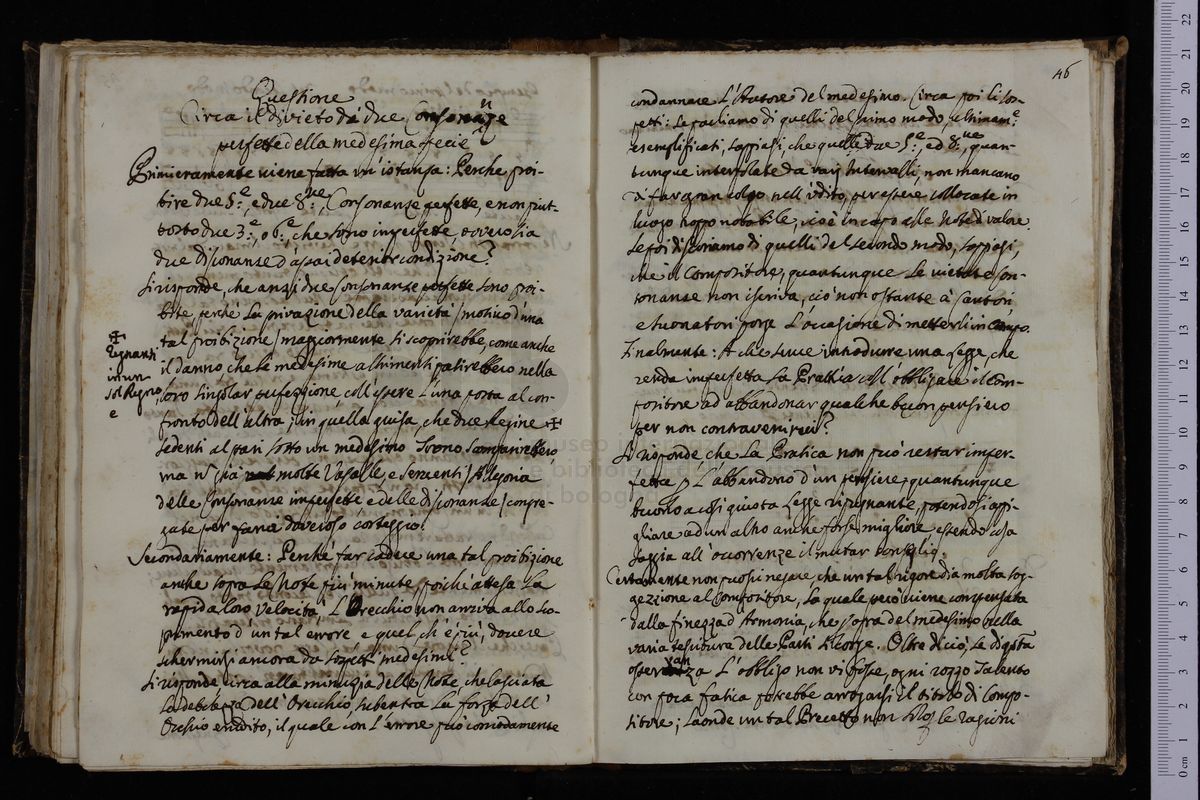 Questione
Circa il divieto di due Consonanze
perfette della medesima specie
Primieramente viene fatta un' istanza: Perche proi-
bire due 5.e, e due 8.ve, Consonanze perfette, e non piut-
tosto due 3.e, o 6.e, che sono imperfette, ovvero sia
due disonanze d'assai deterior condizione?
Si risponde, che anzi due Consonanze perfette sono proi-
bite, perchè la privazione della varietà / motivo d'una
tal proibizione / maggiormente si scoprirebbe, come anche
il danno che le medesime altrimenti patirebbero nella
loro singolar perfezione, coll' essere l'una posta al con-
fronto dell' altra; in quella guisa, che due Regine ✠
✠
Regnanti
in un
sol Regno,
e
sedenti al pari sotto un medesimo Trono
ma molte Vasalle, e Serventi / Allegoria
delle Consonanze imperfette e delle disonanze / congre-
gate per farvi doveroso corteggio.
Secondariamente: Perchè far cadere una tal proibizione
anche sopra le Note più minute, poichè attesa la
rapida loro velocità, l'Orecchio non arriva allo sco-
primento d'un tal errore e quel, ch' è più, dovere
schermirsi ancora da sospetti medesimi?
Si risponde circa alla minuzia delle Note, che lasciata
la debolezza dell' Orecchio subentra la forza dell'
Occhio erudito, il quale con l'errore può comodamente
46
condannare l'Autore del medesimo. Circa poi li sos-
petti: Se parliamo di quelli del primo modo, ultimam.e
esemplificati, sappiasi, che quelle due 5.e, ed 8.ve, quan-
tunque interpolate da varj Intervalli, non mancano
di far gran colpo nell' udito, per essere collocate in
luogo troppo notabile, cioè in capo alle Note di valore.
Se poi discoriamo di quelli del secondo modo, sappiasi,
che il Compositore, quantunque le vietate con-
sonanze non iscriva, ciò non ostante à Cantori,
e Suonatori porge l'occasione di metterli in campo.
Finalmente: A che serve introdurre una legge, che
renda imperfetta la Prattica coll' obbligare il Com-
positore ad abbandonar qualche buon pensiero
per non contravenirvi?
Si risponde che la Pratica non può restar imper-
fetta p l'abbandono d'un pensiere, quantunque
buono a così giusta legge ripugnante, potendosi appi-
gliare ad un altro anche forse migliore essendo cosa
saggia all' occorrenze il mutar consiglio.
Certamente non puossi negare, che un tal rigore dia molta sog-
gezzione al Compositore, la quale però viene compensata
dalla finezza d'Armonia, che sopra del medesimo nella
varia tessitura delle Parti risorge. Oltre di ciò, se di questa
osservanza l'obbligo non vi fosse, ogni rozzo Talento
con poca fatica potrebbe arrogarsi il titolo di Compo-
sitore; laonde un tal Precetto non le ragioni